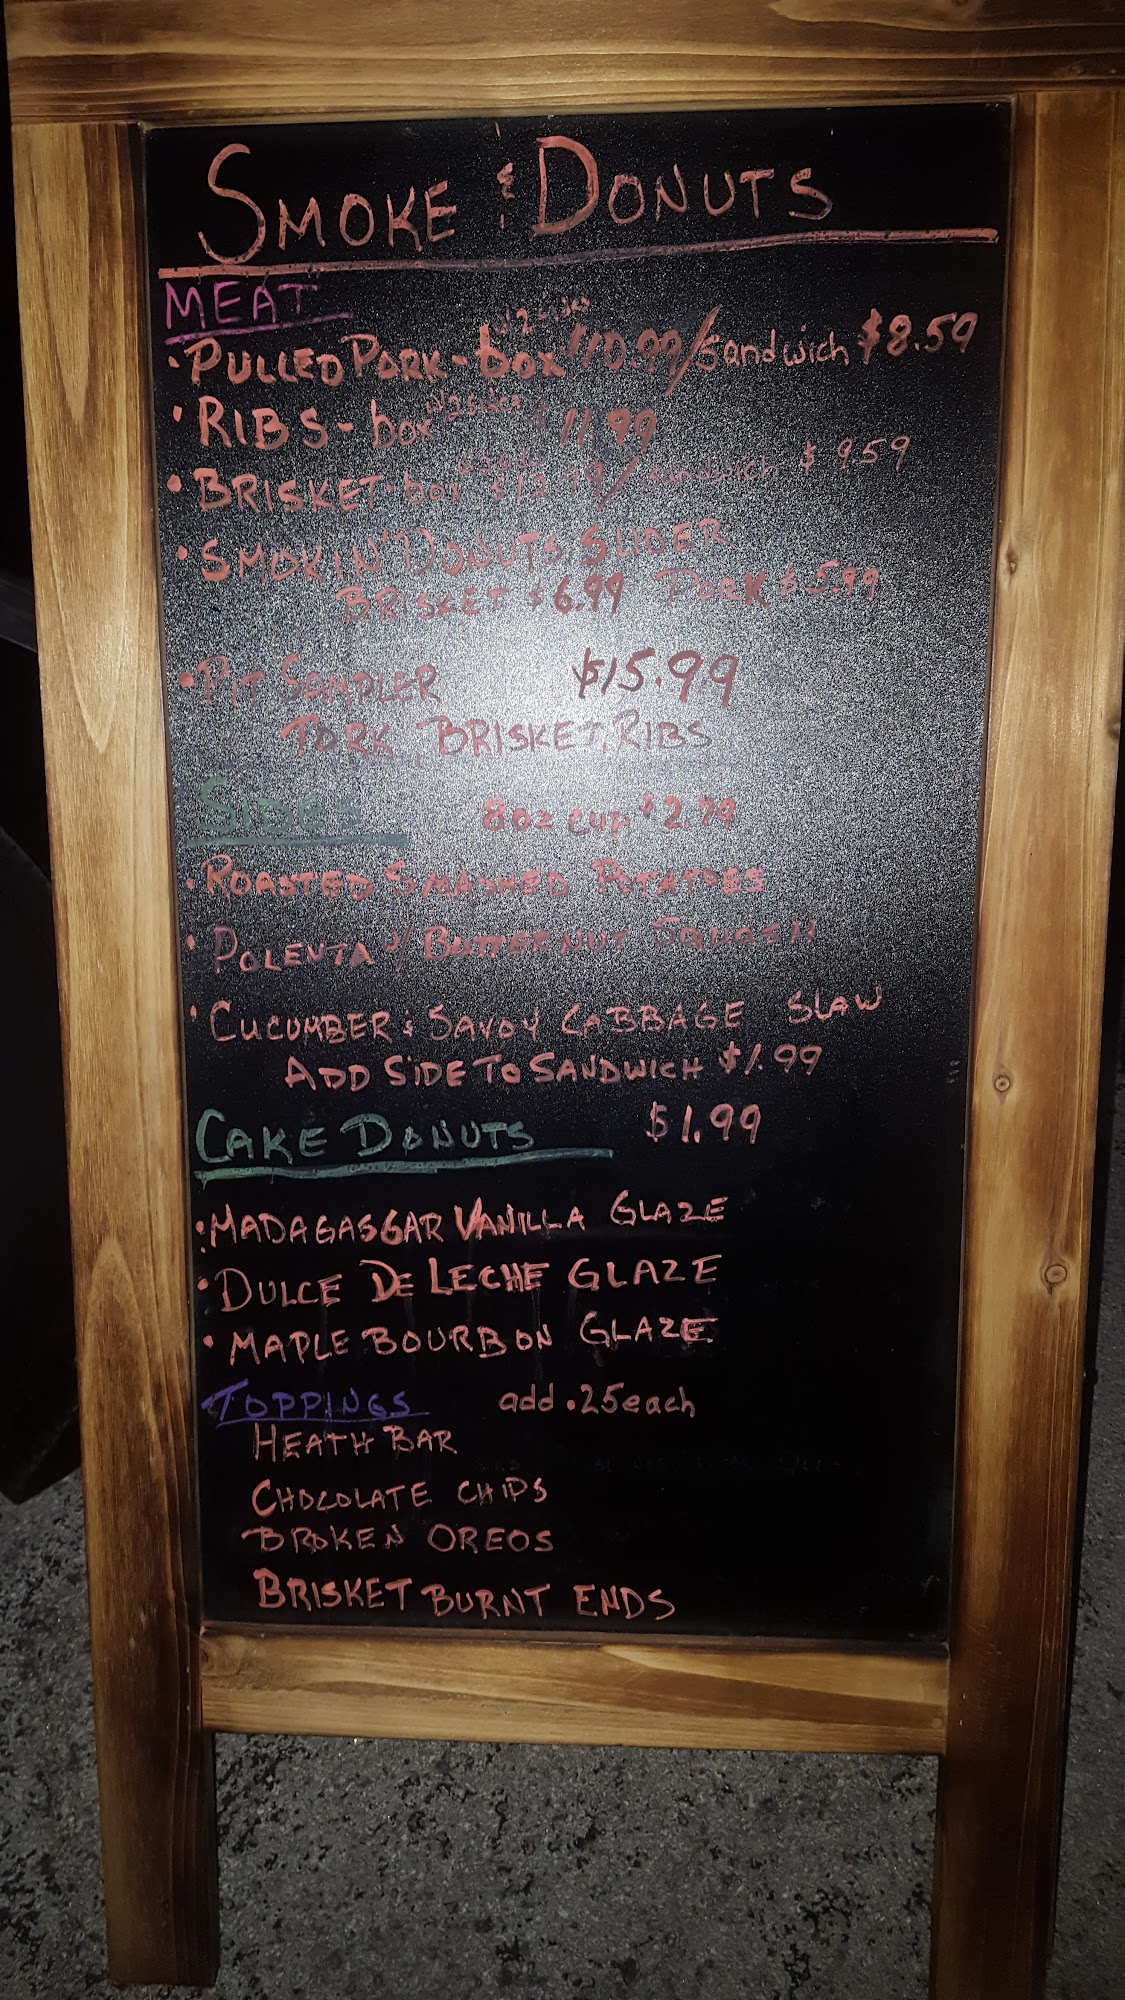 SMOKE & DONUTS
MEAT
• PULLED PORK - box w/2 sides $10.99/sandwich $8.59
• RIBS - box w/2 sides $11.99
• BRISKET - box w/2 sides /sandwich $9.59
• SMOKIN' DONUTS SLIDER
BRISKET $6.99 PORK $5.99
• PIT SAMPLER $15.99
PORK, BRISKET, RIBS
SIDES 8oz cup $2.79
• ROASTED SMASHED POTATOES
• POLENTA w/ BUTTERNUT SQUASH
• CUCUMBER & SAVOY CABBAGE SLAW
ADD SIDE TO SANDWICH $1.99
CAKE DONUTS $1.99
• MADAGASGAR VANILLA GLAZE
• DULCE DE LECHE GLAZE
• MAPLE BOURBON GLAZE
TOPPINGS add .25 each
HEATH BAR
CHOCOLATE CHIPS
BROKEN OREOS
BRISKET BURNT ENDS